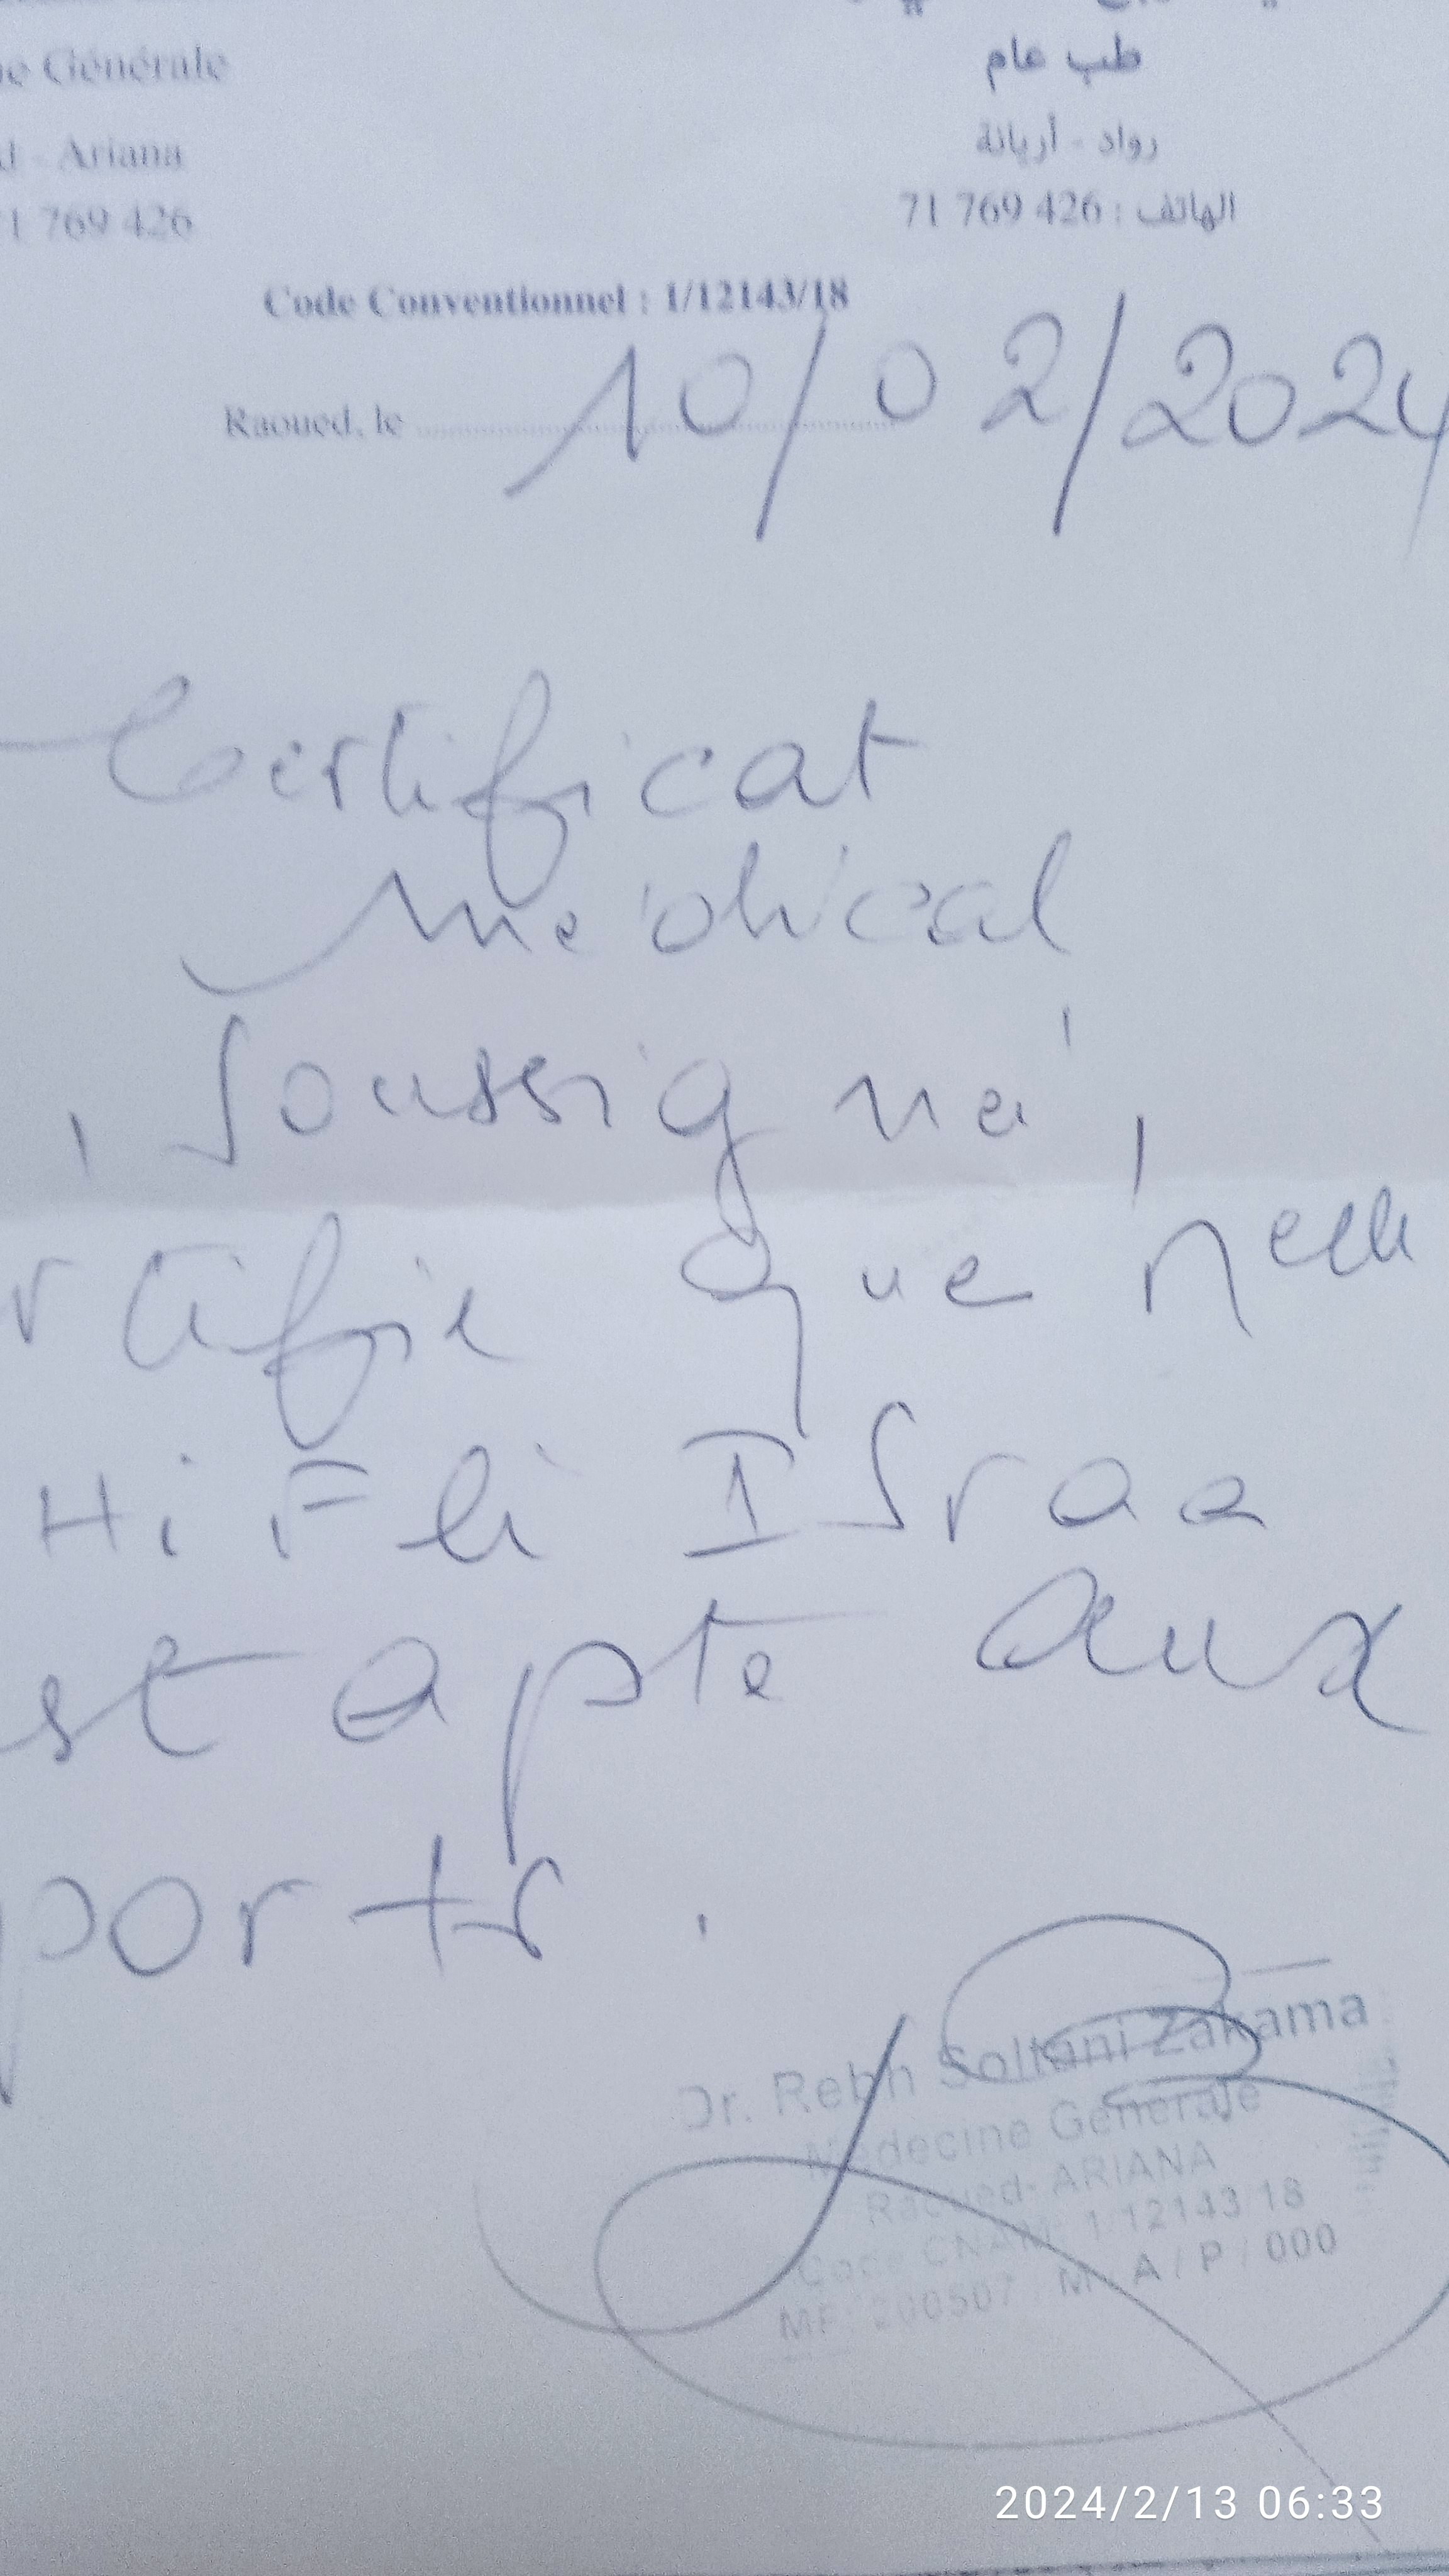 e Générale
طب عام
d - Ariana
رواد - أريانة
71 769 426
الهاتف : 426 769 71
Code Conventionnel : 1/12143/18
Raoued, le 10/02/2024
Certificat
médical
, Soussigné,
rtifie que Melle
HiFli Israa
st apte aux
ports.
Dr. Rebh Soltani Zakama
Médecine Générale
Raoued- ARIANA
Code CNAM: 1/12143/18
MF: 200507 / M / A / P / 000
2024/2/13 06:33